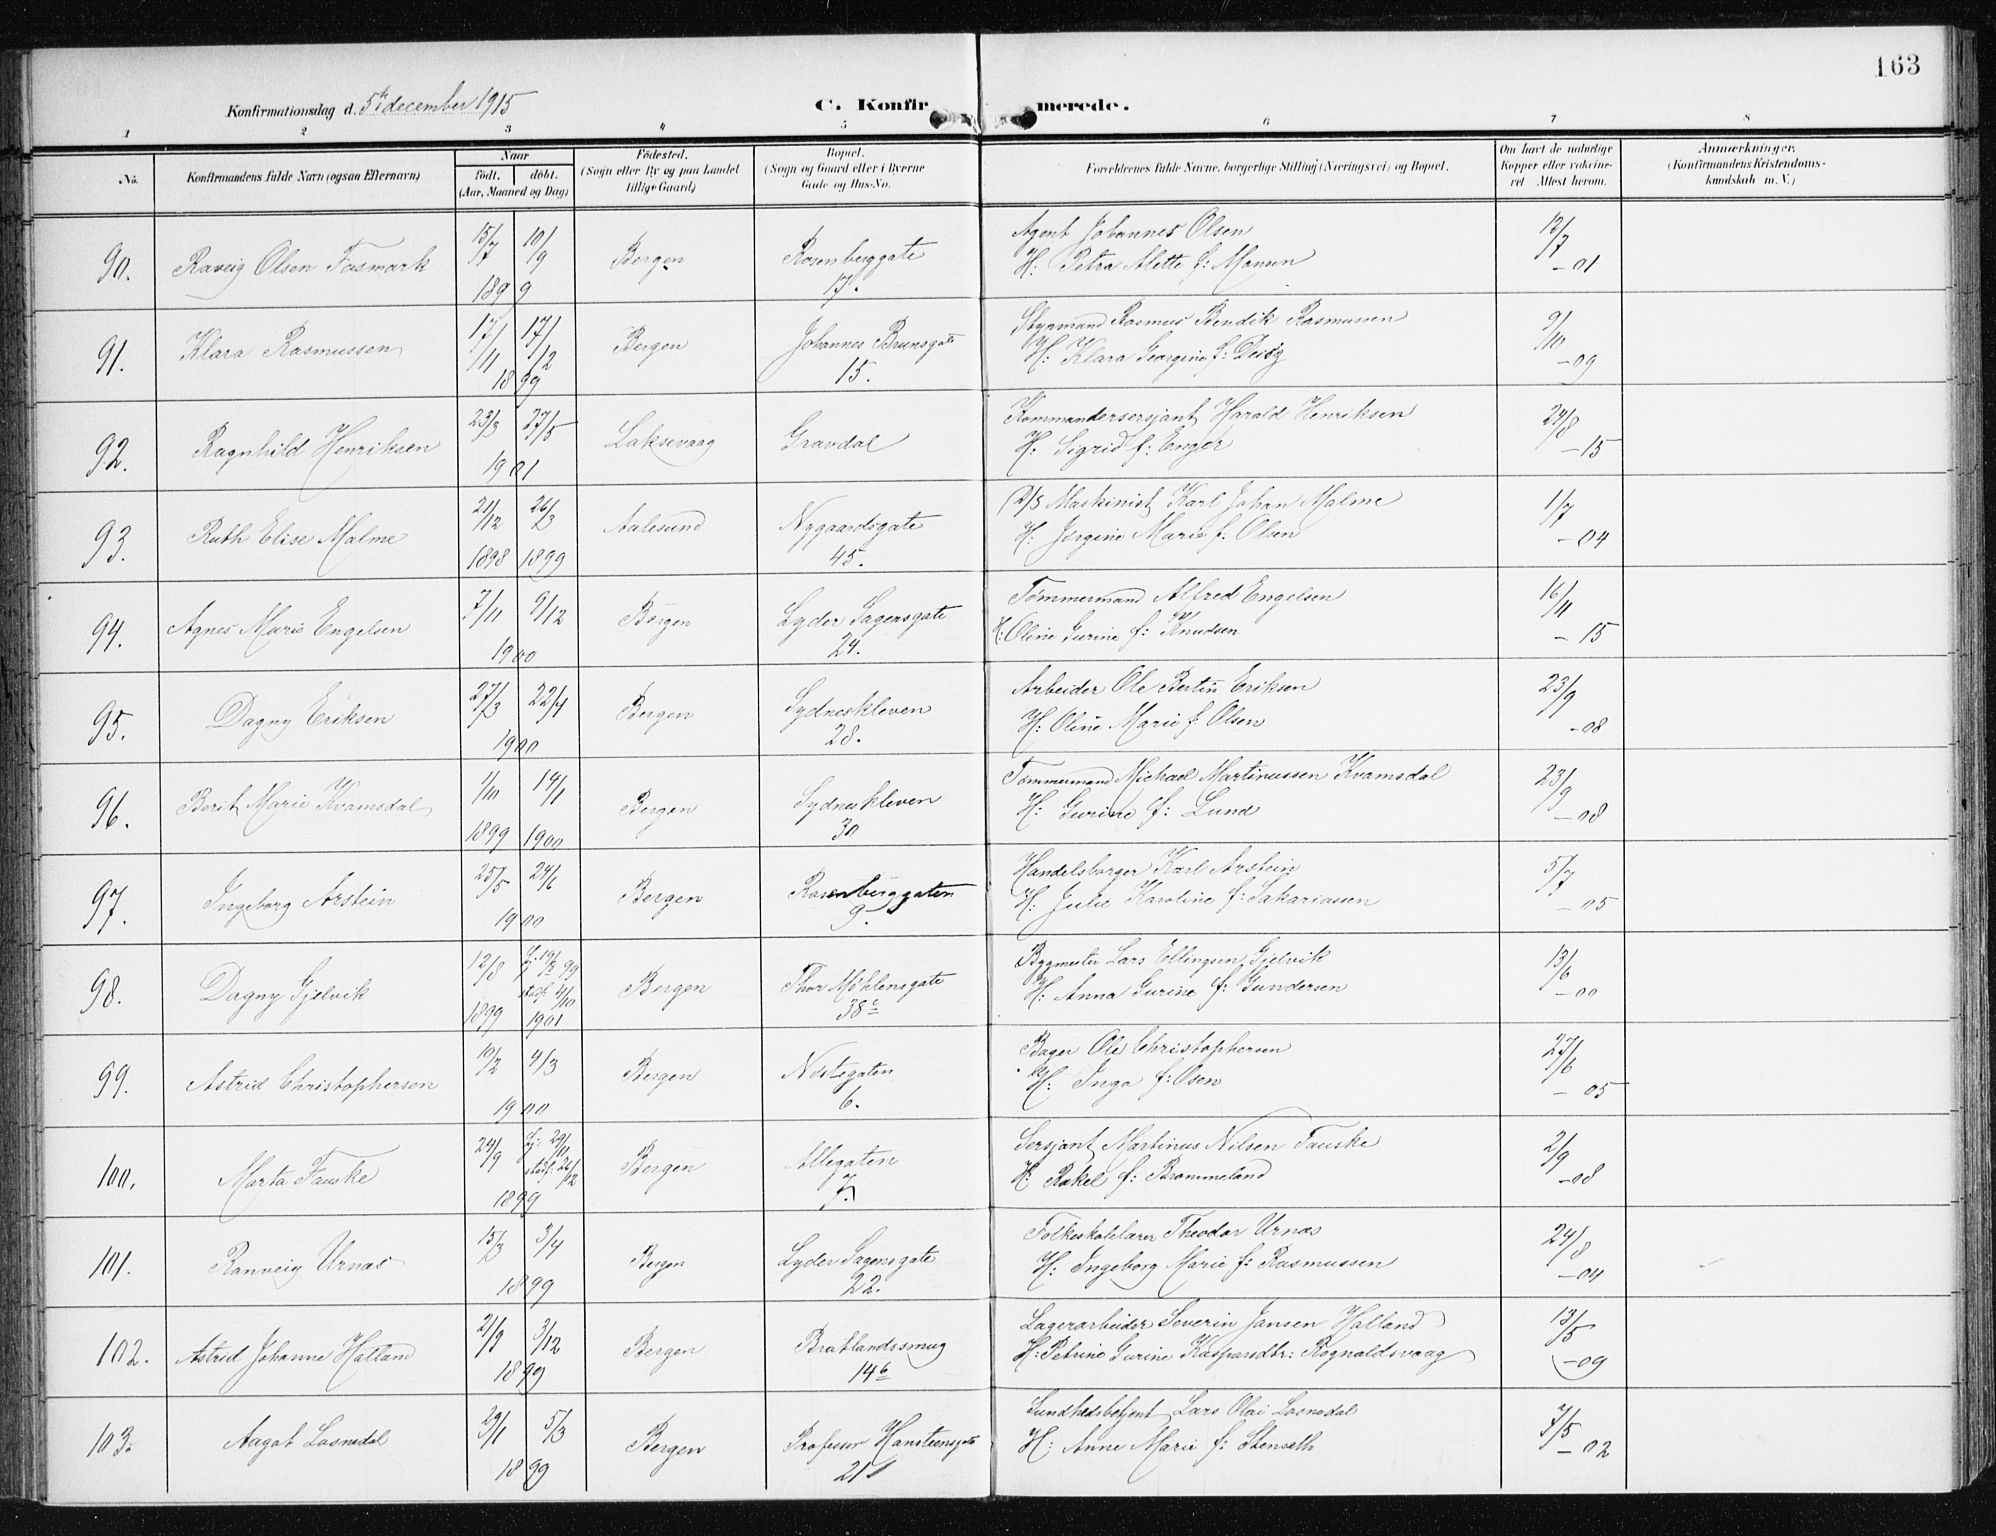 163
Konfirmationsdag d. 5te december 1915
C. Konfirmerede.
1 2 3 4 5 6 7 8
No. Konfirmandens fulde Navn (ogsaa Efternavn) Naar født. døbt. (Aar, Maaned og Dag) Fødested. (Sogn eller By og paa Landet tillige Gaard) Bopæl. (Sogn og Gaard eller i Byerne Gade og Hus-No. Forældrenes fulde Navne, borgerlige Stilling (Næringsvei) og Bopæl. Om havt de naturlige Kopper eller vaccineret Attest herom. Anmærkninger. (Konfirmandens Kristendomskundskab m. V.)
90. Raveig Olsen Fosmark 15/7 10/9 1899 Bergen Rosenberggate 17. Agent Johannes Olsen
H: Petra Alette f: Monsen 12/7 -01
91. Klara Rasmussen 17/11 17/12 1899 Bergen Johannes Brunsgate 15. Styrmand Rasmus Bendik Rasmussen
H: Klara Georgine f: 9/10 -09
92. Ragnhild Henriksen 23/3 27/5 1901 Laksevaag Gravdal Kommandersersjant Harald Henriksen
H: Sigrid f: Enger 24/8 -15
93. Ruth Elise Malme 21/12 1898 26/3 1899 Aalesund Nygaardsgate 45. Maskinist Karl Johan Malme
H: Jørgine Marie f: Olsen 1/7 -04
94. Agnes Marie Engelsen 7/11 9/12 1900 Bergen Lyder Sagensgate 24. Tømmermand Alfred Engelsen
H: Oline Gurine f: Knudsen 16/11 -15
95. Dagny Eriksen 27/3 22/4 1900 Bergen Sydneskleven 28. Arbeider Ole Bertin Eriksen
H: Oline Marie f: Olsen 23/9 -08
96. Berit Marie Kvamsdal 1/10 1899 14/1 1900 Bergen Sydneskleven 30 Tømmermand Michael Martinussen Kvamsdal
H: Gurine f: Lund 23/9 -08
97. Ingeborg Arstein 25/5 24/6 1900 Bergen Rosenberggaten 9. Handelsborger Karl Arstein
H: Julie Karoline f: Sakariassen 5/7 -05
98. Dagny Gjelvik 12/8 1899 1901 Bergen Thor Møhlensgate 38c Bygmester Lars Ellingsen Gjelvik
H: Anna Gurine f: Gundersen 13/6 -00
99. Astrid Christophersen 10/2 4/3 1900 Bergen Nøstegaten 6. Bager Ole Christophersen
H: Inga f: Olsen 27/6 -05
100. Marta Fauske 24/9 hj: 29/11 stadf: 26/12 1899 Bergen Allegaten 7. Sersjant Martinus Nilsen Fauske
H: Rakel f: Brommeland 2/9 -08
101. Ranveig Urnæs 15/3 3/4 1899 Bergen Lyder Sagensgate 22. Folkeskolelærer Theodor Urnæs
H: Ingeborg Marie f: Rasmussen 24/8 -04
102. Astrid Johanne Halland 21/9 3/12 1899 Bergen Bratlandssmug 14b Lagerarbeider Severin Jansen Halland
H: Petrine Gurine Kaspardtr: Rognaldsvaag 13/5 -09
103. Aagot Losnedal 29/1 5/3 1899 Bergen Professor Hansteensgate 21 Sundhedsbetjent Lars Olai Losnedal
H: Anne Marie f: Stenseth 7/5 -02